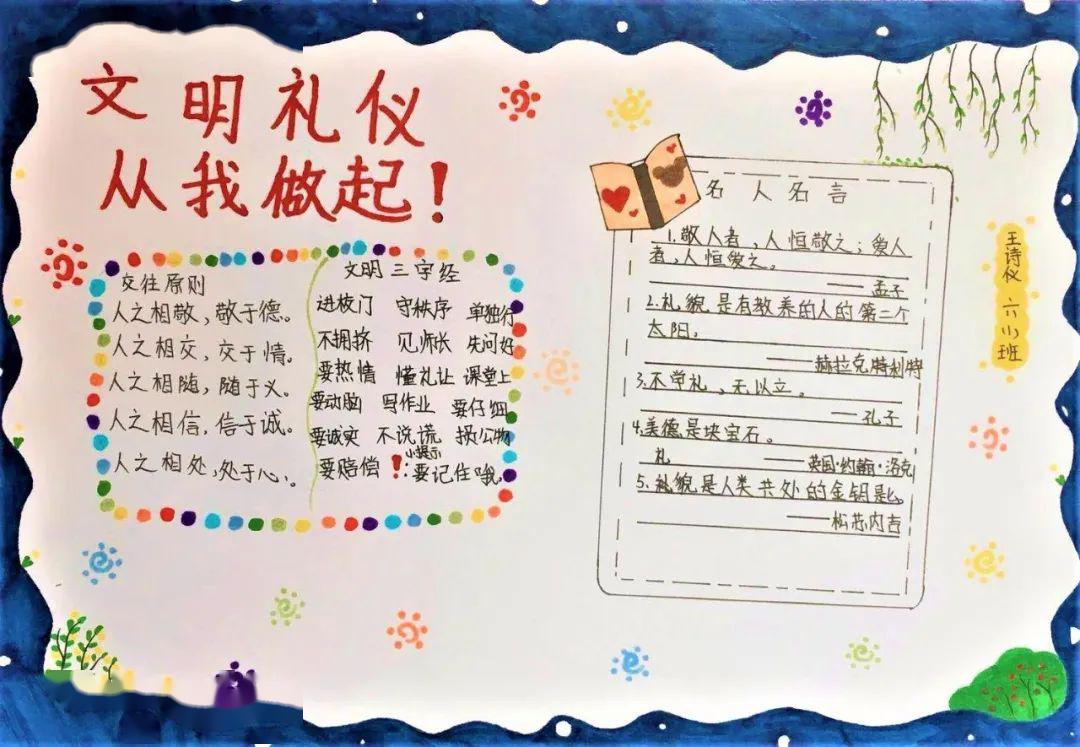 文明礼仪
从我做起！
交往原则
人之相敬，敬于德。
人之相交，交于情。
人之相随，随于义。
人之相信，信于诚。
人之相处，处于心。
文明三字经
进校门 守秩序 单独行
不拥挤 见师长 先问好
要热情 懂礼让 课堂上
要动脑 写作业 要仔细
要诚实 不说谎 损公物
小提示
要赔偿！：要记住哦，
名人名言
1.敬人者，人恒敬之；爱人
者，人恒爱之。
——孟子
2.礼貌是有教养的人的第二个
太阳。
——赫拉克.特利特
3.不学礼，无以立。
——孔子
4.美德是块宝石。
礼 ——英国·约翰·洛克
5.礼貌是人类共处的金钥匙。
——松苏内吉
王诗仪 六小班